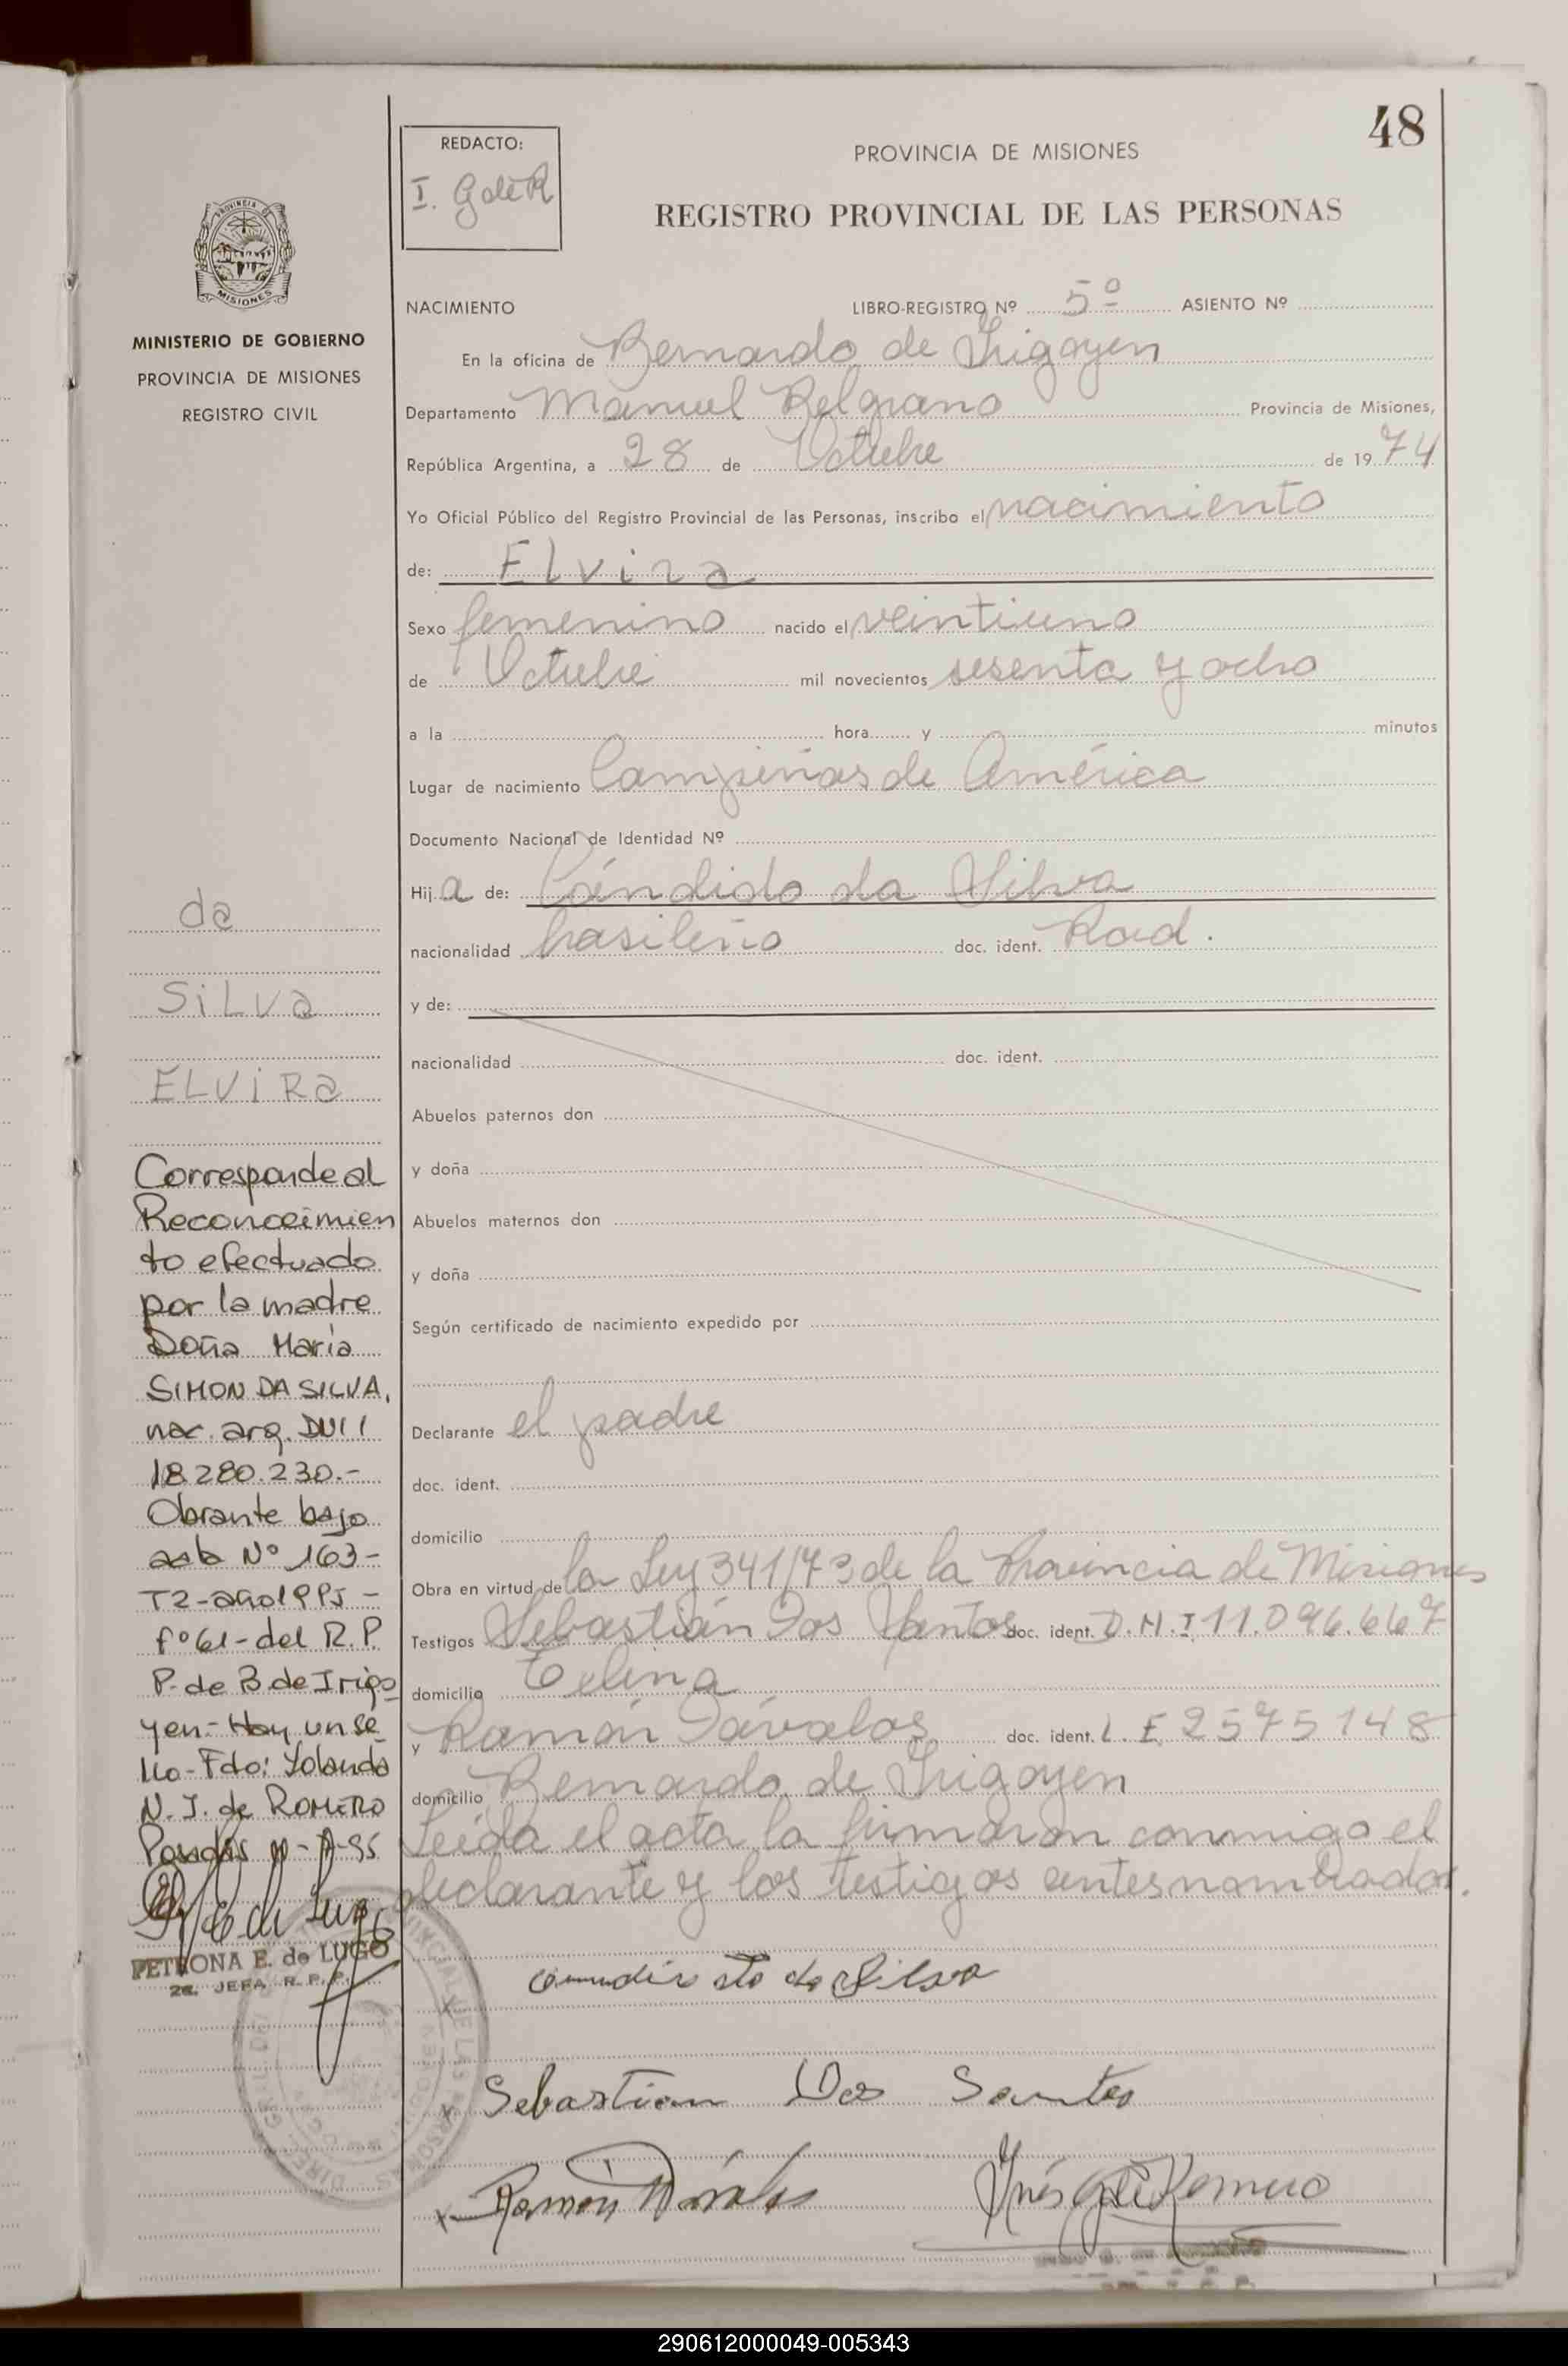 48
REDACTO:
I. G de R
PROVINCIA DE MISIONES
REGISTRO PROVINCIAL DE LAS PERSONAS
PROVINCIA DE
MISIONES
MINISTERIO DE GOBIERNO
PROVINCIA DE MISIONES
REGISTRO CIVIL
NACIMIENTO LIBRO-REGISTRO Nº 5º ASIENTO Nº
En la oficina de Bernardo de Irigoyen
Departamento Manuel Belgrano Provincia de Misiones,
República Argentina, a 28 de Octubre de 1974
Yo Oficial Público del Registro Provincial de las Personas, inscribo el nacimiento
de: Elvira
Sexo femenino nacido el veintiuno
de Octubre mil novecientos sesenta y ocho
a la hora y minutos
Lugar de nacimiento Campiñas de América
Documento Nacional de Identidad Nº
Hija de: Cándido da Silva
nacionalidad brasileño doc. ident. Rad.
y de:
nacionalidad doc. ident.
Abuelos paternos don
y doña
Abuelos maternos don
y doña
Según certificado de nacimiento expedido por
Declarante el padre
doc. ident.
domicilio
Obra en virtud de la Ley 341/73 de la Provincia de Misiones
Testigos Sebastián Dos Santos doc. ident. D.N.I 11.096.667
domicilio
y Ramón Dávalos doc. ident. L.E. 2575148
domicilio Bernardo de Irigoyen
Leída el acta la firmaron conmigo el
declarante y los testigos antesnombrados.
da Silva
Sebastian Dos Santos
Ramón Dávalos Inés G de Romero
da
SiLVa
ELViRa
Corresponde al
Reconocimien
to efectuado
por la madre
Doña María
SIMON DA SILVA,
nac. arg. DNI
18.280.230.-
Obrante bajo
acta Nº 163-
T2-año 1995-
fº 61-del R.P.
P. de B. de Irigo
yen- Hay un se
llo-Fdo: Yolanda
N. J. de ROMERO
Posadas
PETRONA E. de LUGO
JEFA R. P. P.
290612000049-005343